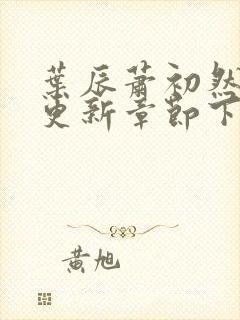 葉辰蕭初然
更新章節下
黃旭